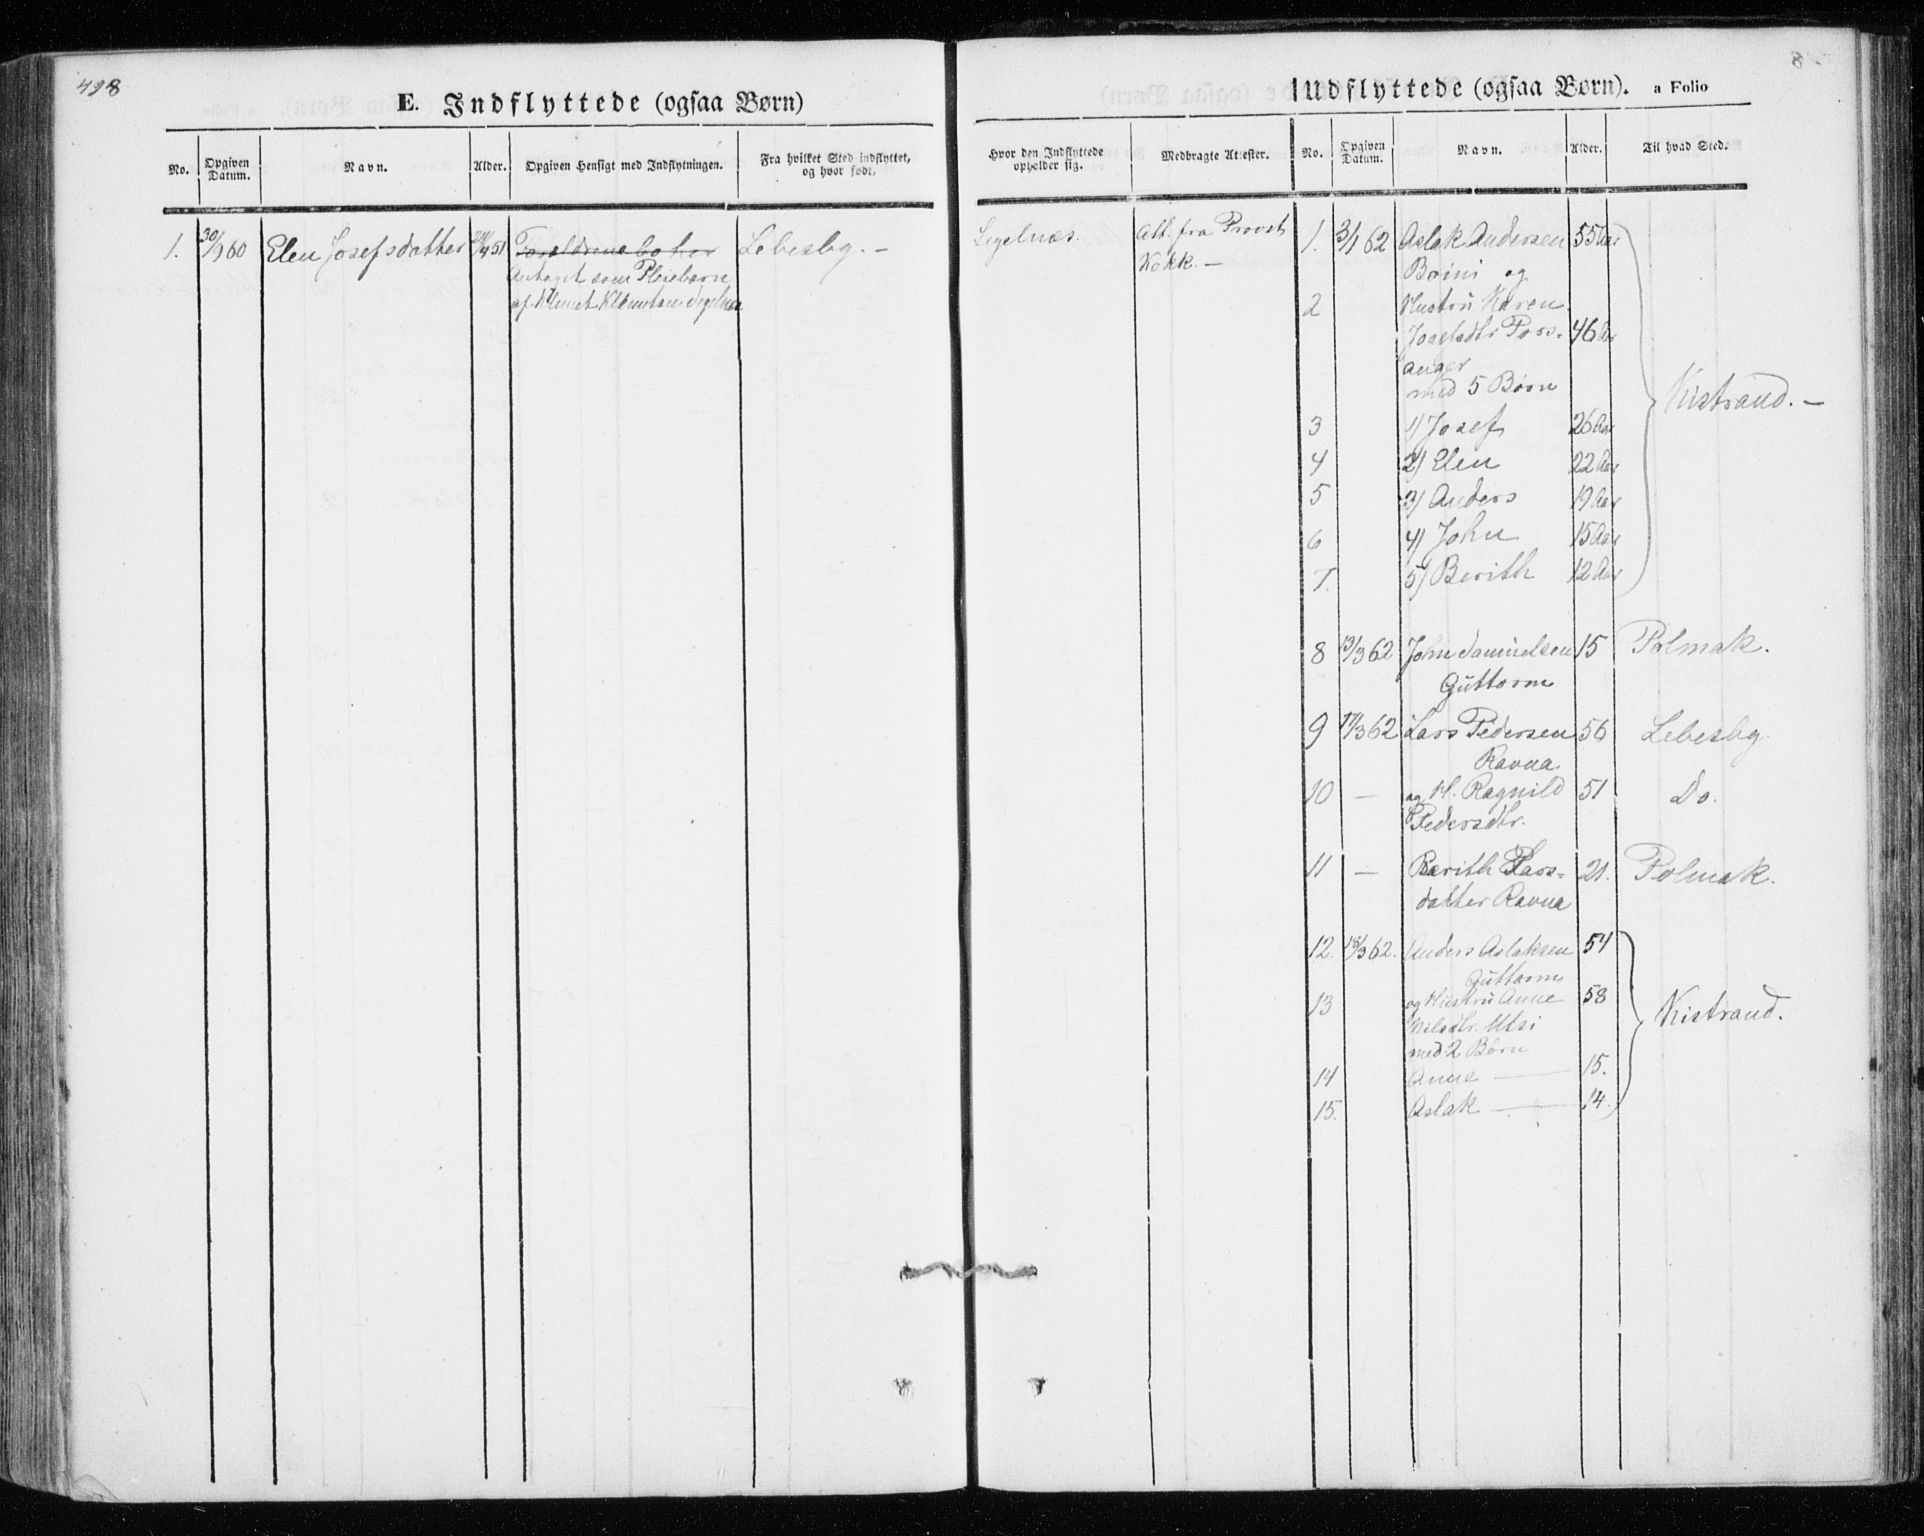 498
E. Indflyttede (ogsaa Børn)
No.
Opgiven Datum.
Navn.
Alder.
Opgiven Hensigt med Indflytningen.
Fra hvilket Sted indflyttet, og hvor født.
1. 30/9 60 Elen Josefsdatter 51 Forældrene bo her Lebesby. –
Antaget som Pleiebarn
af Klemet Klemetsen
Indflyttede (ogsaa Børn). a Folio
8
Hvor den Indflyttede opholder sig.
Medbragte Attester.
No.
Opgiven Datum.
Navn.
Alder.
Til hvad Sted.
Att. fra Provst
Kokk. –
1. 3/1 62 Aslak Andersen 55 Aar
Boini og
2 Hustru Karen
Josefsdtr Pors- 46 Aar
anger
med 5 Børn
Kistrand. –
3 1) Josef 26 Aar
4 2) Elen 22 Aar
5 3) Anders 19 Aar
6 4) John 15 Aar
7. 5) Berith 12 Aar
8 13/3 62 John Samuelsen 15 Polmak.
Guttorm
9 17/3 62 Lars Pedersen 56 Lebesby
Ravna
10 — og H. Ragnild 51 Do.
Pedersdtr.
11 — Berith Lars- 21. Polmak.
datter Ravna
12. 18/3 62. Anders Aslaksen 54
Guttorm
13 og Hustru Anne 58 Kistrand.
Nilsdtr. Utsi
med 2 Børn
14 Anne — 15.
15. Aslak — 14.